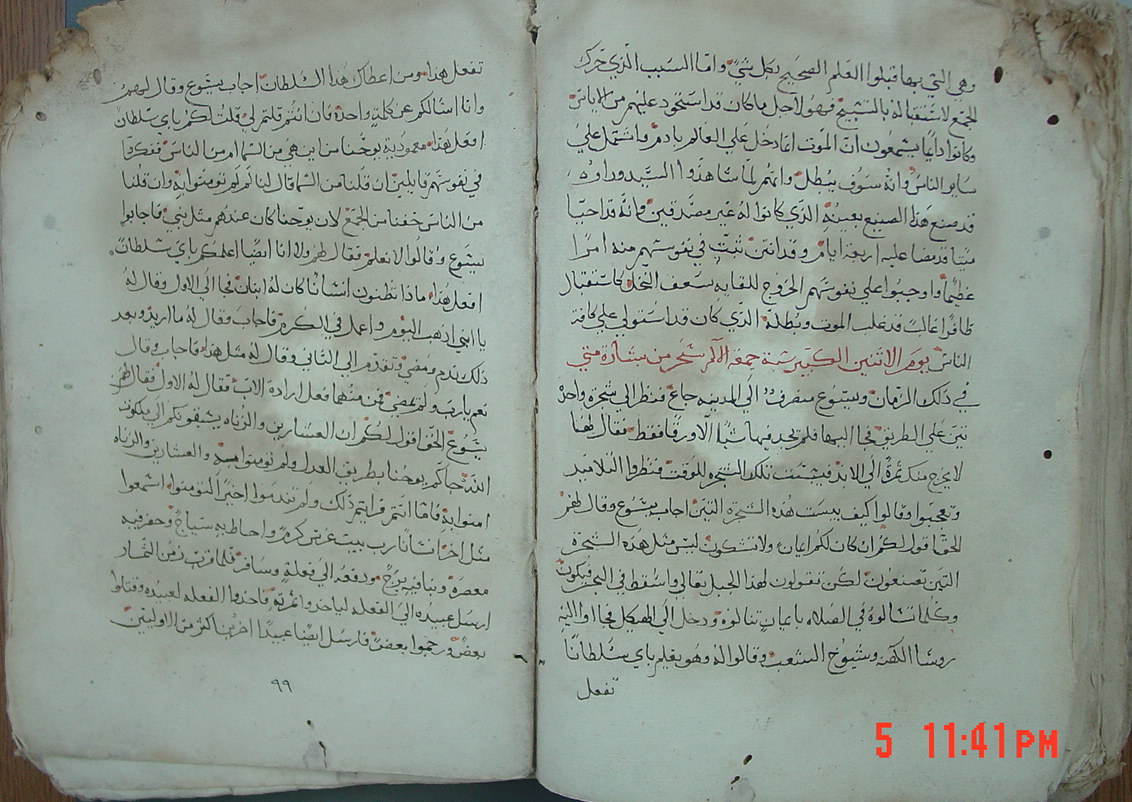 وهي التي بها قبلوا العلم الصحيح بكل شي واما السبب الذي حرك
الجمع لاستقباله بالتسبيح فهو لاجل ما كان قد استحود عليهم من الاياس
وكانوا دايما يسمعون ان الموت انما دخل على العالم بادم واشتمل علي
ساير الناس وانه سوف يبطل وانهم لما شاهدوا السيد وراوه
قد صنع هذا الصنيع بعينه الذي كانوا له غير مصدقين وانه قد احيا
ميتا قد مضا عليه اربعة ايام وقد انتن تثبت في نفوسهم منه امرا
عظيما واوجبوا علي نفوسهم الخروج للقايه بسعف النخل كاستقبال
ظافرا غالب قد غلب الموت وبطله الذي كان قد استولي علي كافة
الناس يوم الاثنين الكبير من جمعة الالام سحر من بشارة متي
في ذلك الزمان ويسوع منصرف الي المدينه جاع فنظر الي شجره واحده
تين علي الطريق فجا اليها فلم يجد فيها شيا الا ورقا فقط فقال لها
لا يخرج منك ثمرة الي الابد فيبست تلك الشجره للوقت فنظروا التلاميد
وتعجبوا وقالوا كيف يبست هده الشجرة التين اجاب يسوع وقال لهم
الحق اقول لكم ان كان لكم ايمان ولا تشكون ليس مثل هده الشجرة
التين تصنعون لكن تقولون لهدا الجبل تعالي واسقط في البحر فيكون
وكلما تسالوه في الصلاه بايمان تنالوه ودخل الي الهيكل فجااوا اليه
روسا الكهنه وشيوخ الشعب وقالوا له وهو يعلم باي سلطانا
تفعل
تفعل هدا ومن اعطاك هدا السلطان اجاب يسوع وقال لهم
وانا اسالكم عن كلمة واحدة فان انتم قلتم لي قلت لكم باي سلطان
افعل هدا معمودية يوحنا من اين هي من السما ام من الناس ففكروا
في نفوسهم قايلين ان قلنا من السما قال لنا لم لم تومنوا به وان قلنا
من الناس خفنا من الجمع لان يوحنا كان عندهم مثل نبي فاجابوا
يسوع وقالوا لا نعلم فقال لهم ولا انا ايضا اعلمكم باي سلطان
افعل هدا ماذا تظنون انسانا كان له ابنان فجا الي الاول وقال له
يا ابني ادهب اليوم واعمل في الكرم فاجاب وقال له ما اريد وبعد
ذلك ندم ومضي وتقدم الي الثاني وقال له مثل هدا فاجاب وقال
نعم يارب ولم يمضي فمن منهما فعل ارادة الاب فقال له الاول فقال لهم
يسوع الحق اقول لكم ان العشارين والزناه يسبقونكم الي ملكوت
الله جاكم يوحنا بطريق العدل ولم تومنوا به والعشارين والزناه
امنوا به فاما انتم فرايتم ذلك ولم تندموا اخيرا لتومنوا اسمعوا
مثل اخر انسانا رب بيت غرس كرم واحاط به سياج وحفر فيه
معصره وبنا فيه برج ودفعه الي فعلة وسافر فلما قرب زمن الثمار
ارسل عبيده الي الفعله لياخدوا ثمرته فاخدوا الفعله لعبيده وقتلوا
بعض ورجموا بعض فارسل ايضا عبيدا اخر اكثر من الاوليين
٩٩
5 11:41PM